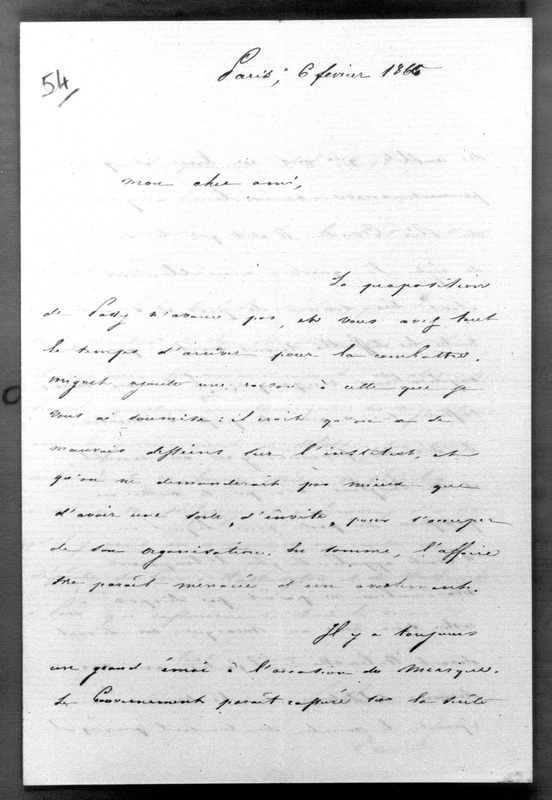 54/
Paris, 6 février 1865
mon cher ami,
La proposition
de Passy n'avance pas, et vous avez tout
le temps d'arriver pour la combattre.
Mignet ajoute une raison à celle que je
vous ai soumise : il croit qu'on a de
mauvais desseins sur l'institut, et
qu'on ne demanderait pas mieux que
d'avoir une sorte "d'invite" pour s'occuper
de son organisation. En somme, l'affaire
me paraît menacée d'un avortement.
Il y a toujours
un grand émoi à l'occasion du Mexique.
Le Gouvernement paraît rassuré sur la suite